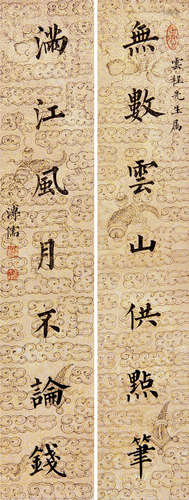 無數雲山供點筆
雲程先生屬
滿江風月不論錢
溥儒